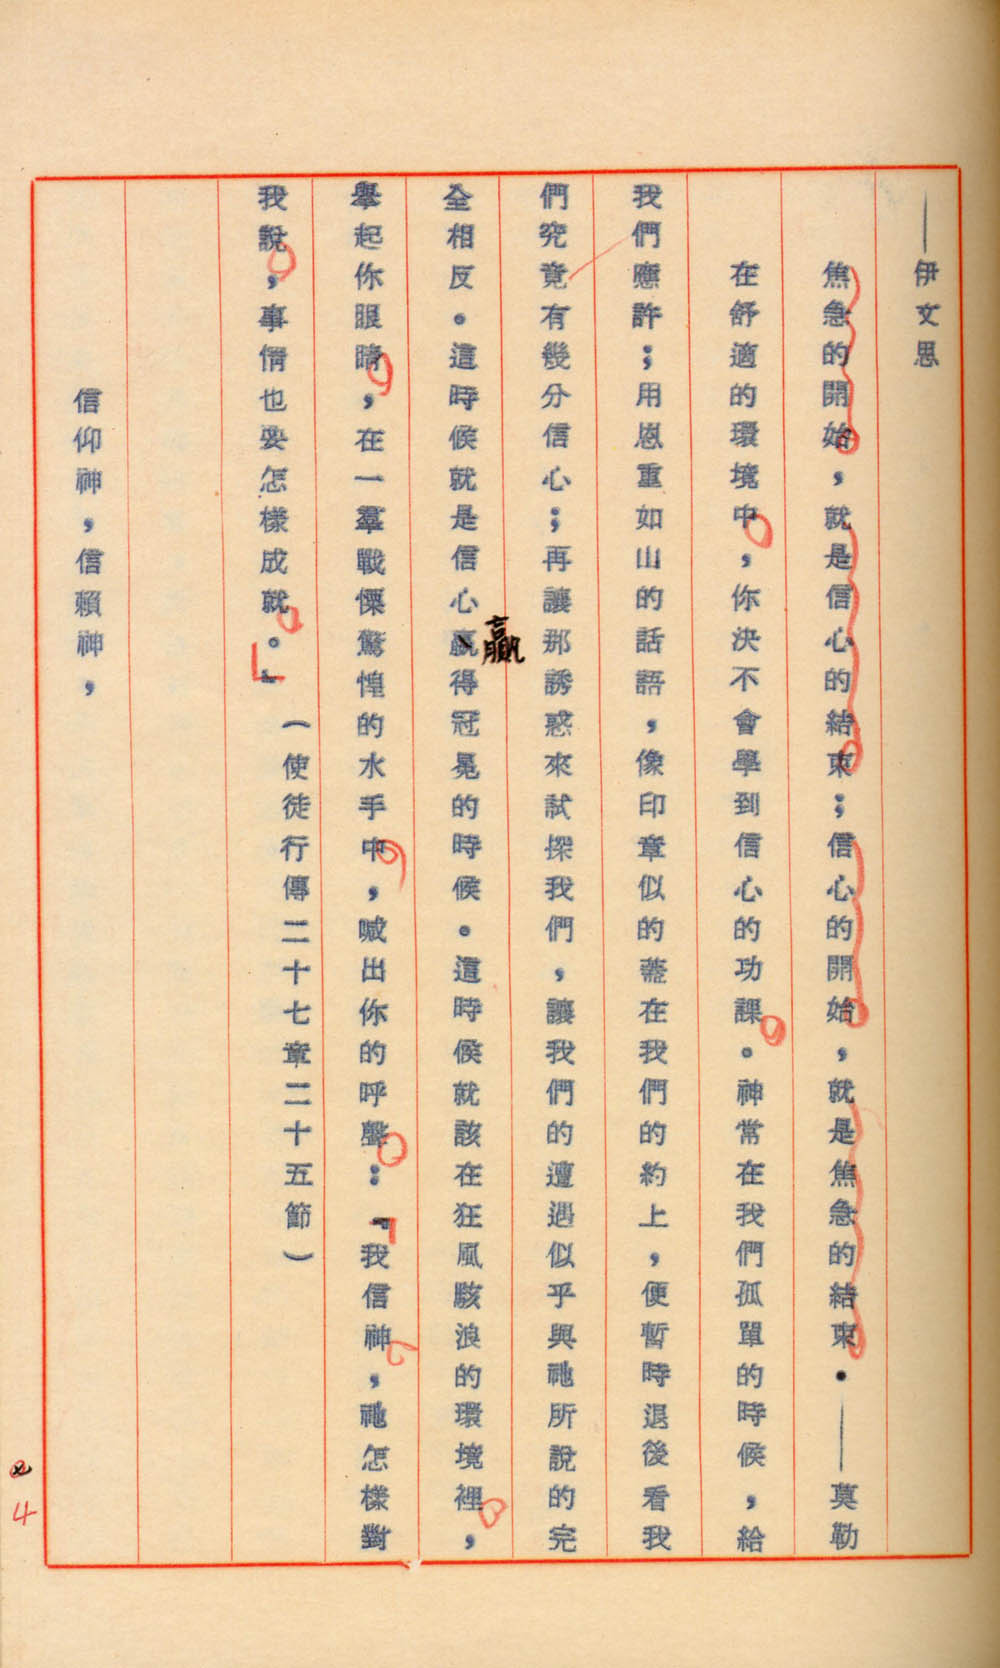 ——伊文思
焦急的開始，就是信心的結束；信心的開始，就是焦急的結束．——莫勒
在舒適的環境中，你決不會學到信心的功課。神常在我們孤單的時候，給
我們應許；用恩重如山的話語，像印章似的蓋在我們的約上，便暫時退後看我
們究竟有幾分信心；再讓那誘惑來試探我們，讓我們的遭遇似乎與祂所說的完
全相反。這時候就是信心贏得冠冕的時候。這時候就該在狂風駭浪的環境裡，
贏
舉起你眼睛，在一羣戰慄驚惶的水手中，喊出你的呼聲：『我信神，祂怎樣對
我說，事情也要怎樣成就。』（使徒行傳二十七章二十五節）
信仰神，信賴神，
4